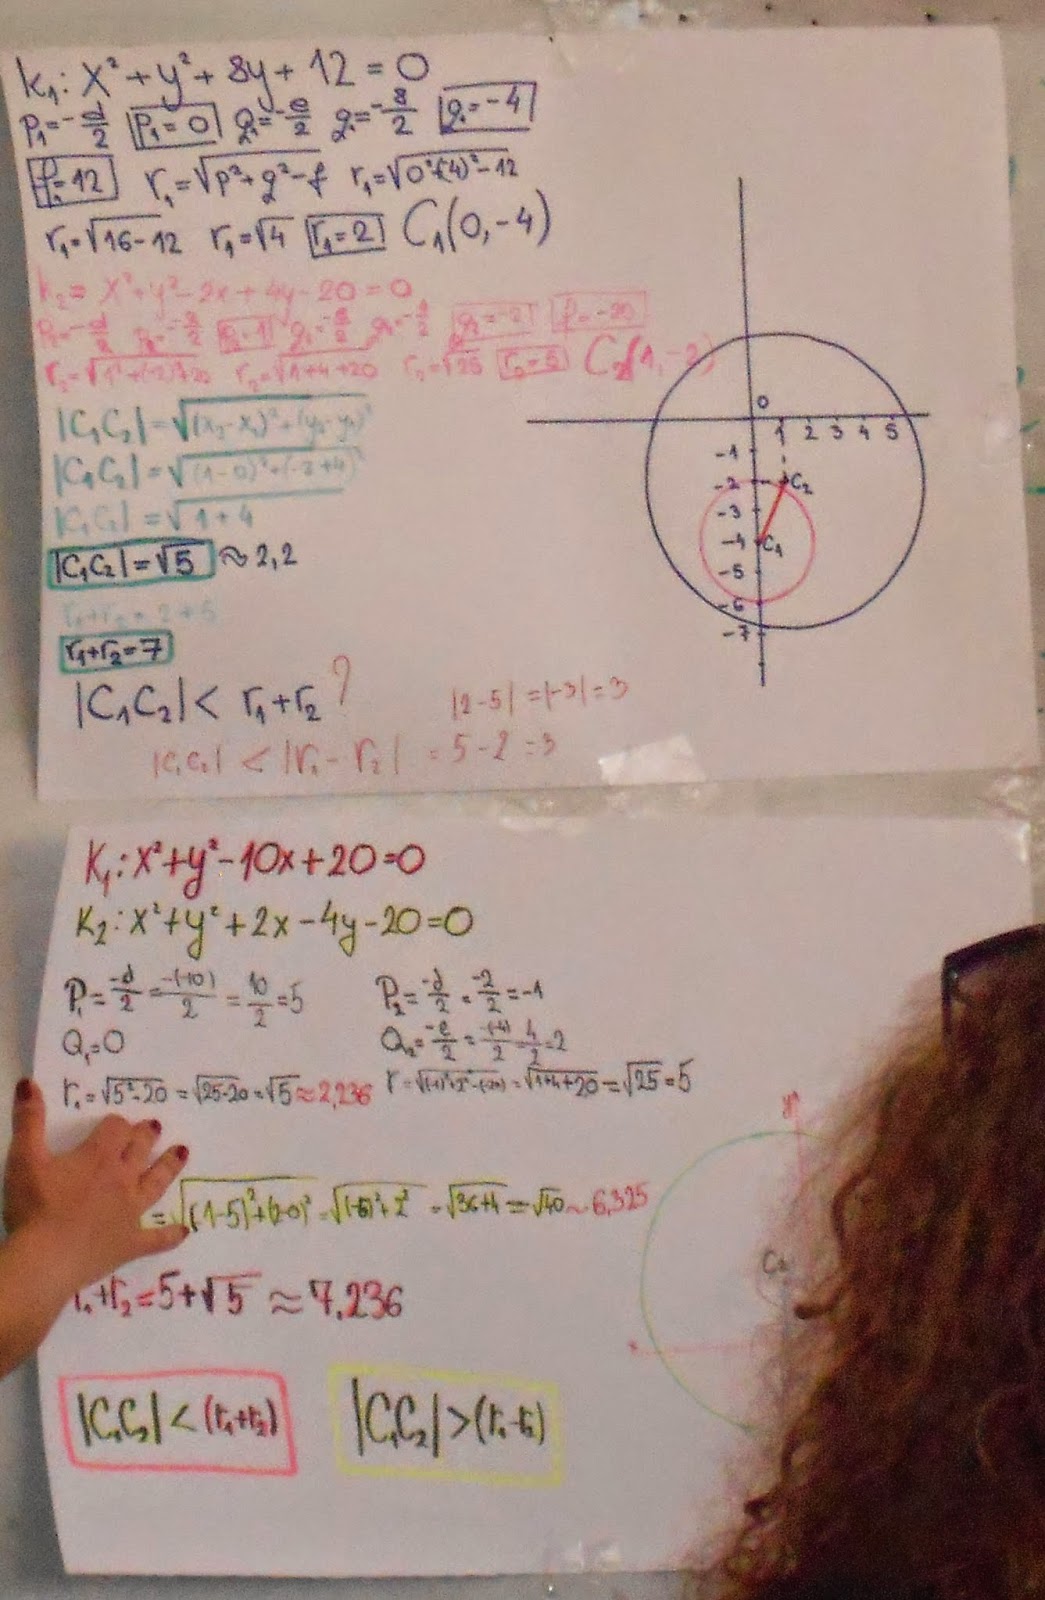 K₁: X² + y² + 8y + 12 = 0
P₁ = -d/2 P₁ = 0 q₁ = -e/2 q₁ = -8/2 q₁ = -4
f₁ = 12 r₁ = √p² + q² - f r₁ = √0²+(-4)² - 12
r₁ = √16 - 12 r₁ = √4 r₁ = 2 C₁(0, -4)
K₂ = X² + y² - 2x + 4y - 20 = 0
r₂ = √1² + (-2)² + 20 r₂ = √1 + 4 + 20 r₂ = √25 r₂ = 5 C₂(1, -2)
|C₁C₂| = √(x₂ - x₁)² + (y₂ - y₁)²
|C₁C₂| = √(1 - 0)² + (-2 + 4)²
|C₁C₂| = √1 + 4
|C₁C₂| = √5 ≈ 2,2
r₁ + r₂ = 2 + 5
r₁ + r₂ = 7
|C₁C₂| < r₁ + r₂ ?
|2 - 5| = |-3| = 3
|C₁C₂| < |r₁ - r₂| = 5 - 2 = 3
0
1 2 3 4 5
-1
-2 C₂
-3
-4 C₁
-5
-6
-7
K₁: X² + y² - 10x + 20 = 0
K₂: X² + y² + 2x - 4y - 20 = 0
P₁ = -d/2 = -(-10)/2 = 10/2 = 5 P₂ = -d/2 = -2/2 = -1
Q₁ = 0 Q₂ = -e/2 = -(-4)/2 = 4/2 = 2
r₁ = √5² - 20 = √25 - 20 = √5 ≈ 2,236 r = √(-1)² + 2² - (-20) = √1 + 4 + 20 = √25 = 5
= √(-1 - 5)² + (2 - 0)² = √(-6)² + 2² = √36 + 4 = √40 ~ 6,325
r₁ + r₂ = 5 + √5 ≈ 7,236
|C₁C₂| < (r₁ + r₂) |C₁C₂| > (r₁ - r₂)
y
C₂